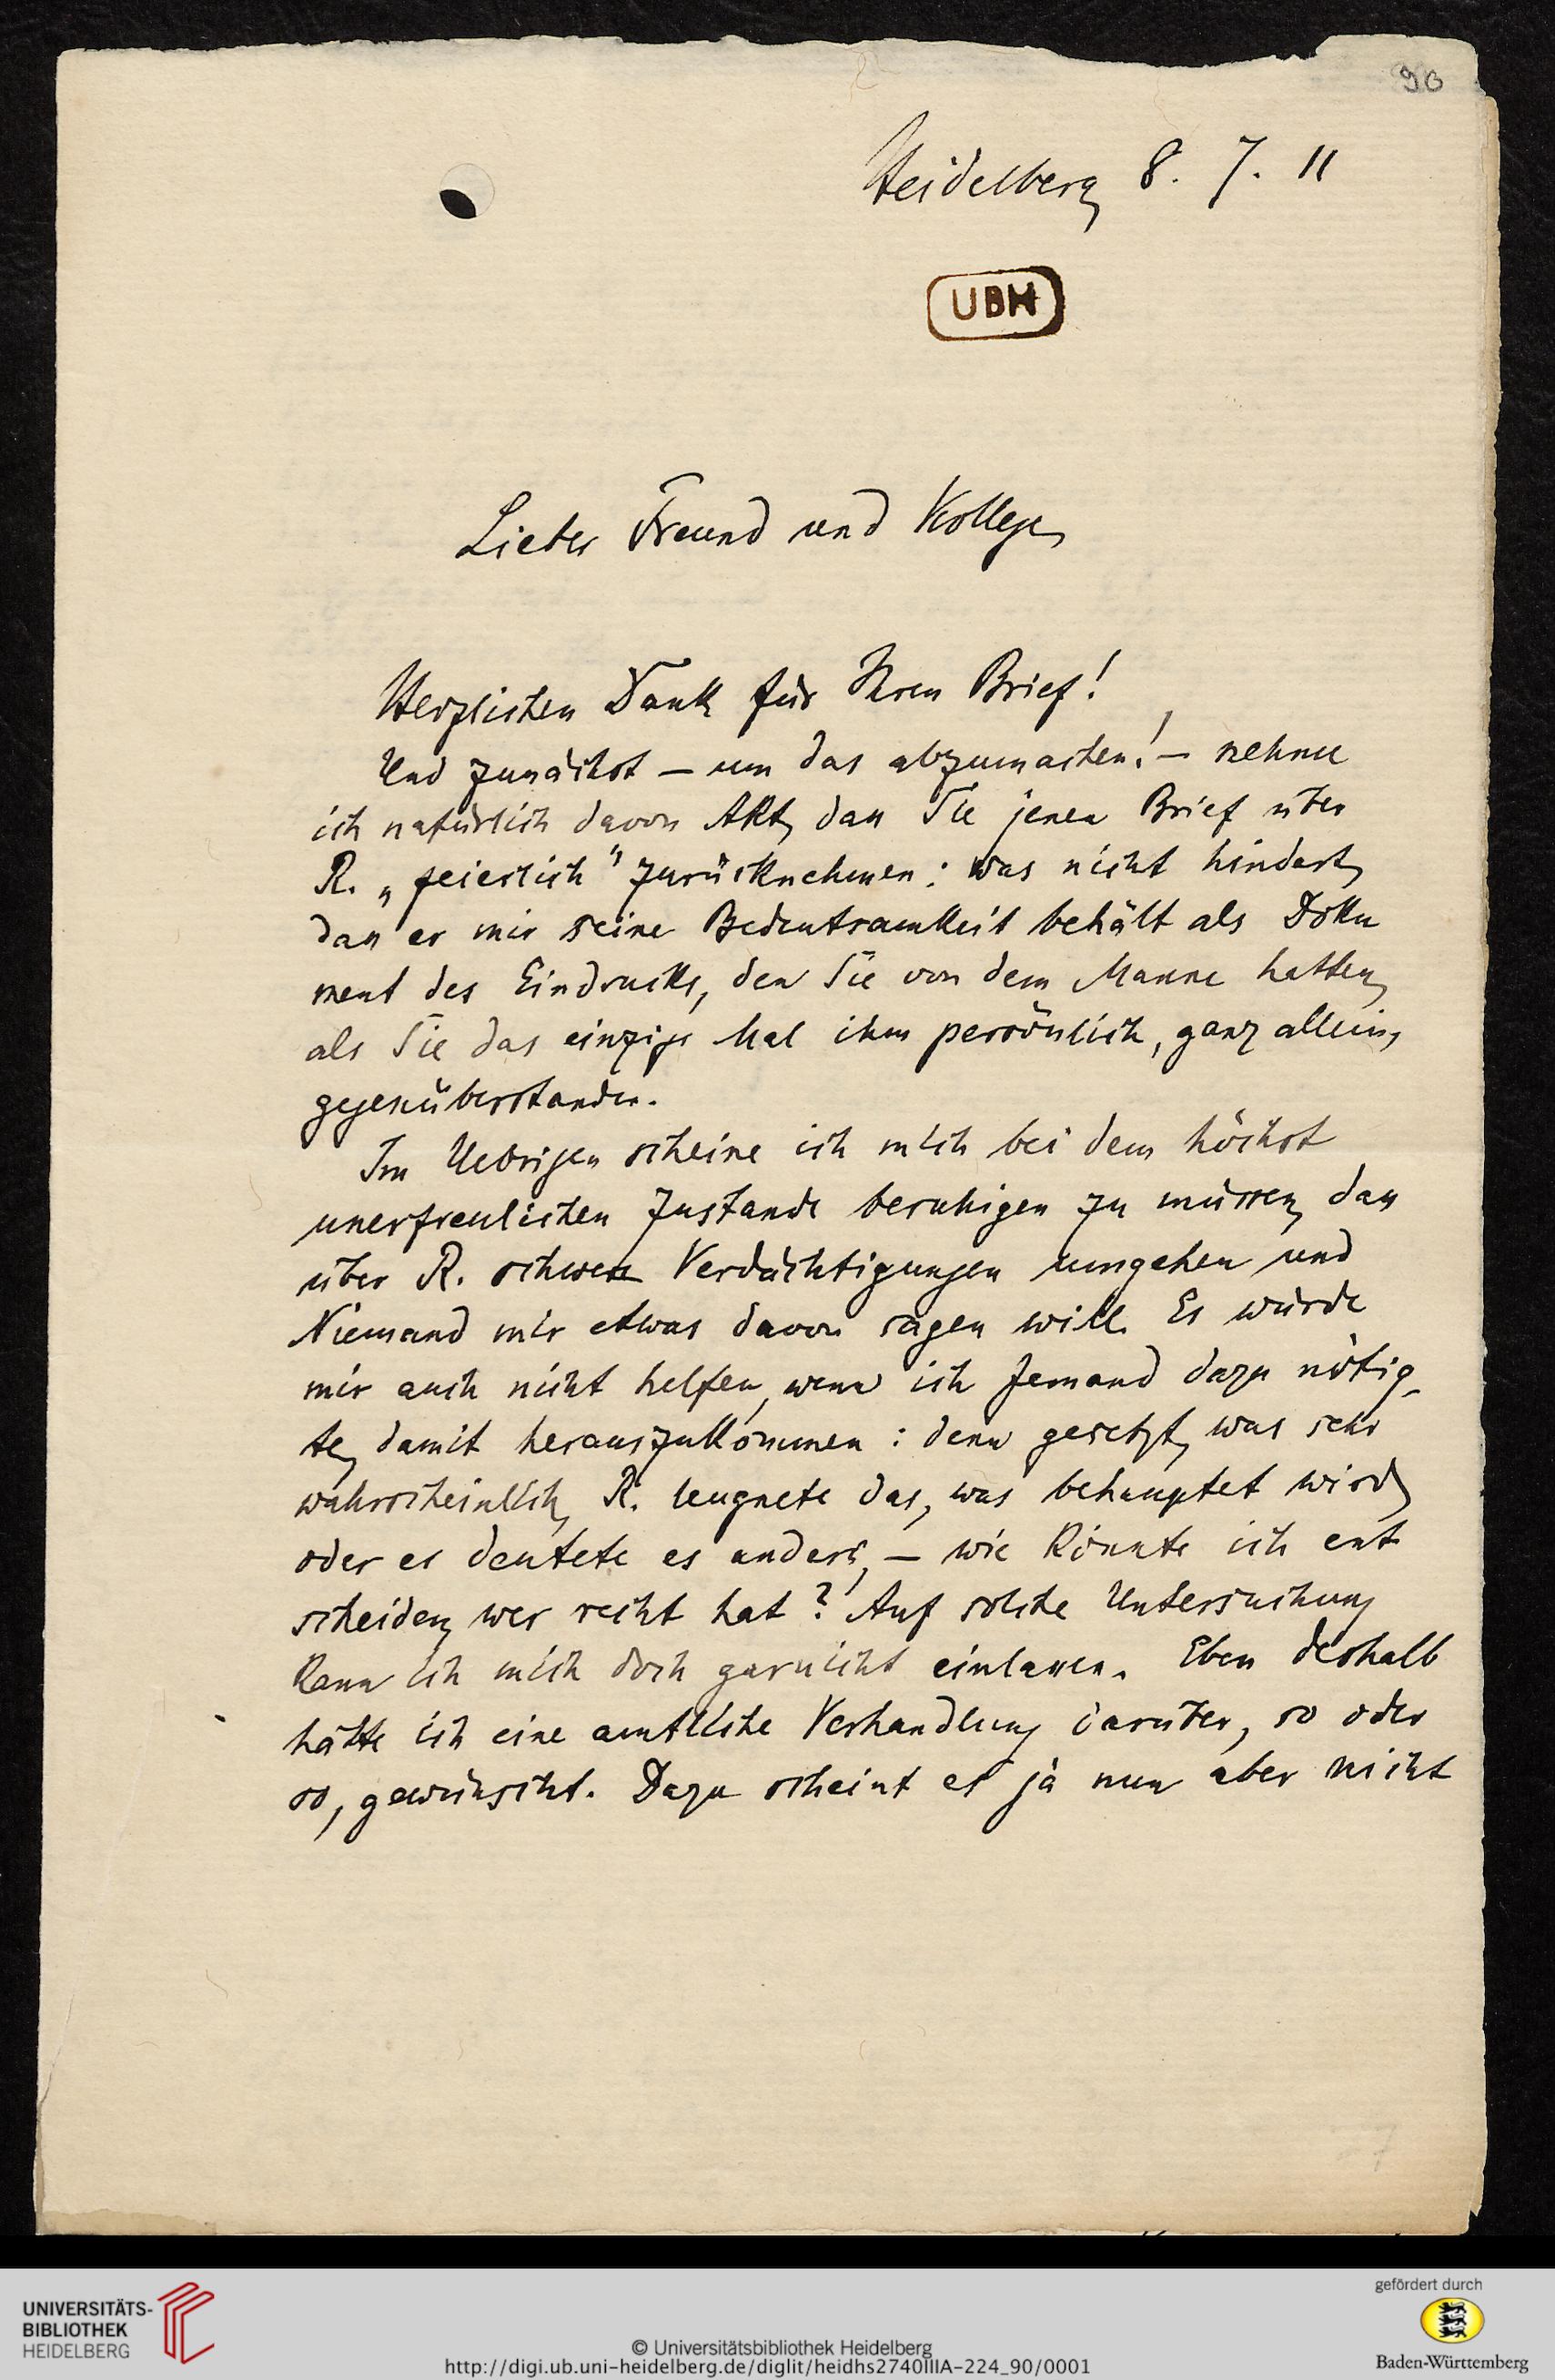 90
Heidelberg 8. 7. 11
UBH
Lieber Freund und Kollege,
Herzlichen Dank für Ihren Brief!
Und zunächst – um das abzumachen! – nehme
ich natürlich davon Akt, dass Sie jenen Brief über
R. „feierlich" zurücknehmen: was nicht hindert,
dass er mir seine Bedeutsamkeit behält als Doku
ment des Eindrucks, den Sie von dem Manne hatten,
als Sie das einzige Mal ihm persönlich, ganz allein,
gegenüberstanden.
Im Uebrigen scheine ich mich bei dem höchst
unerfreulichen Zustande beruhigen zu müssen, dass
über R. schwere Verdächtigungen umgehen und
Niemand mir etwas davon sagen will. Es würde
mir auch nicht helfen, wenn ich Jemand dazu nötig-
te, damit herauszukommen: denn gesetzt, was sehr
wahrscheinlich, R. leugnete das, was behauptet wird,
oder er deutete es anders, – wie könnte ich ent
scheiden, wer recht hat? Auf solche Untersuchung
kann ich mich doch garnicht einlassen. Eben deshalb
hätte ich eine amtliche Verhandlung darüber, so oder
so, gewünscht. Dazu scheint es ja nun aber nicht
UNIVERSITÄTS-
BIBLIOTHEK
HEIDELBERG
© Universitätsbibliothek Heidelberg
http://digi.ub.uni-heidelberg.de/diglit/heidhs2740IIIA-224_90/0001
gefördert durch
Baden-Württemberg